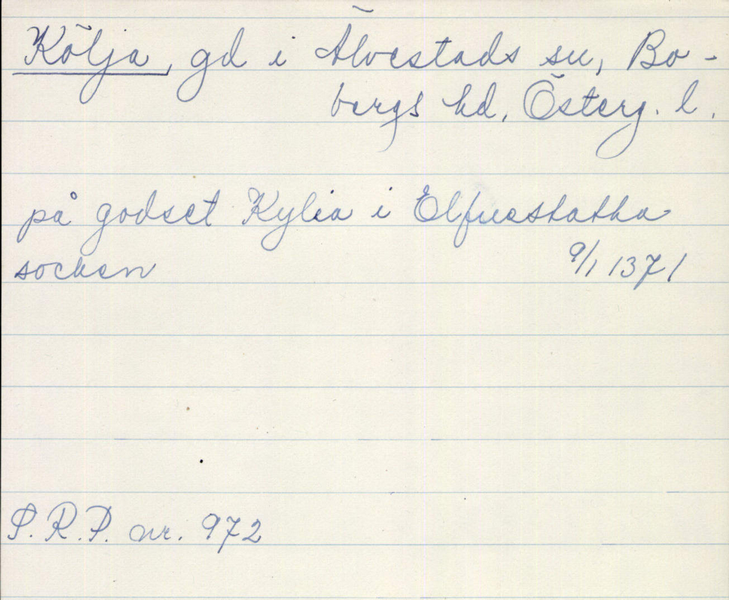 Kölja, gd i Älvestads sn, Bo-
bergs hd. Österg. l.
på godset Kylia i Elfuestatha
socken 9/1 1371
S.R.P. nr. 972